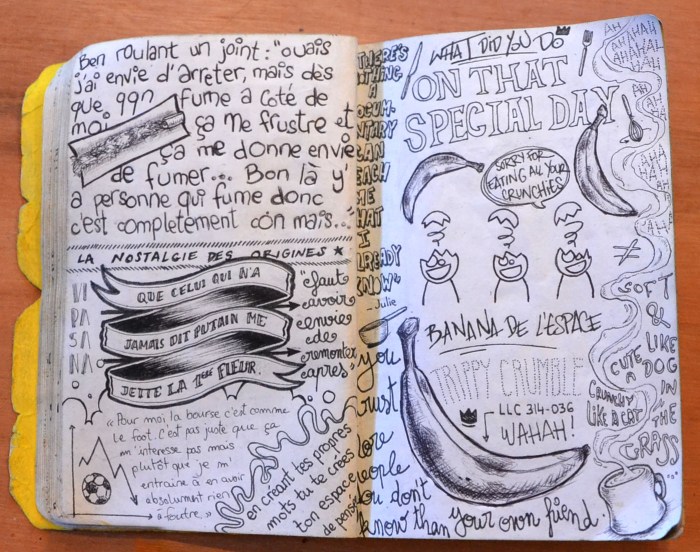 Ben roulant un joint: "ouais
j'ai envie d'arrêter, mais dès
que qqn fume a coté de
moi ça me frustre et
ça me donne envie
de fumer... Bon là y'
a personne qui fume donc
c'est complètement con mais..."
LA NOSTALGIE DES ORIGINES
VI
PA
SA
NA
QUE CELUI QUI N'A
JAMAIS DIT PUTAIN ME
JETTE LA 1ère FLEUR.
"faut
savoir
envies
de
remonter
après"
"Pour moi la bourse c'est comme
le foot. C'est pas juste que ça
m'intéresse pas mais
plutôt que je m'
entraîne à en avoir
absolument rien
à foutre."
en créant tes propres
mots tu te crées
ton espace
de pensée
THERE'S
NOTHING
A
DOCUM-
ENTARY
CAN
TEACH
ME
THAT
I
ALREADY
KNOW"
- Julie
WHAT DID YOU DO
ON THAT
SPECIAL DAY
SORRY FOR
EATING ALL YOUR
CRUNCHIES
BANANA DE L'ESPACE
TRIPPY CRUMBLE
LLC 314-036
WAHAH!
you
trust
more
people
you don't
know than your own friend.
AH AH
AHAHA
HAHAH
AHAH
AH
AH
AHA
HAH
AHAH
≠
SOFT
&
CUTE
LIKE
A DOG
IN
THE
GRASS
CRUNCHY
LIKE A CAT